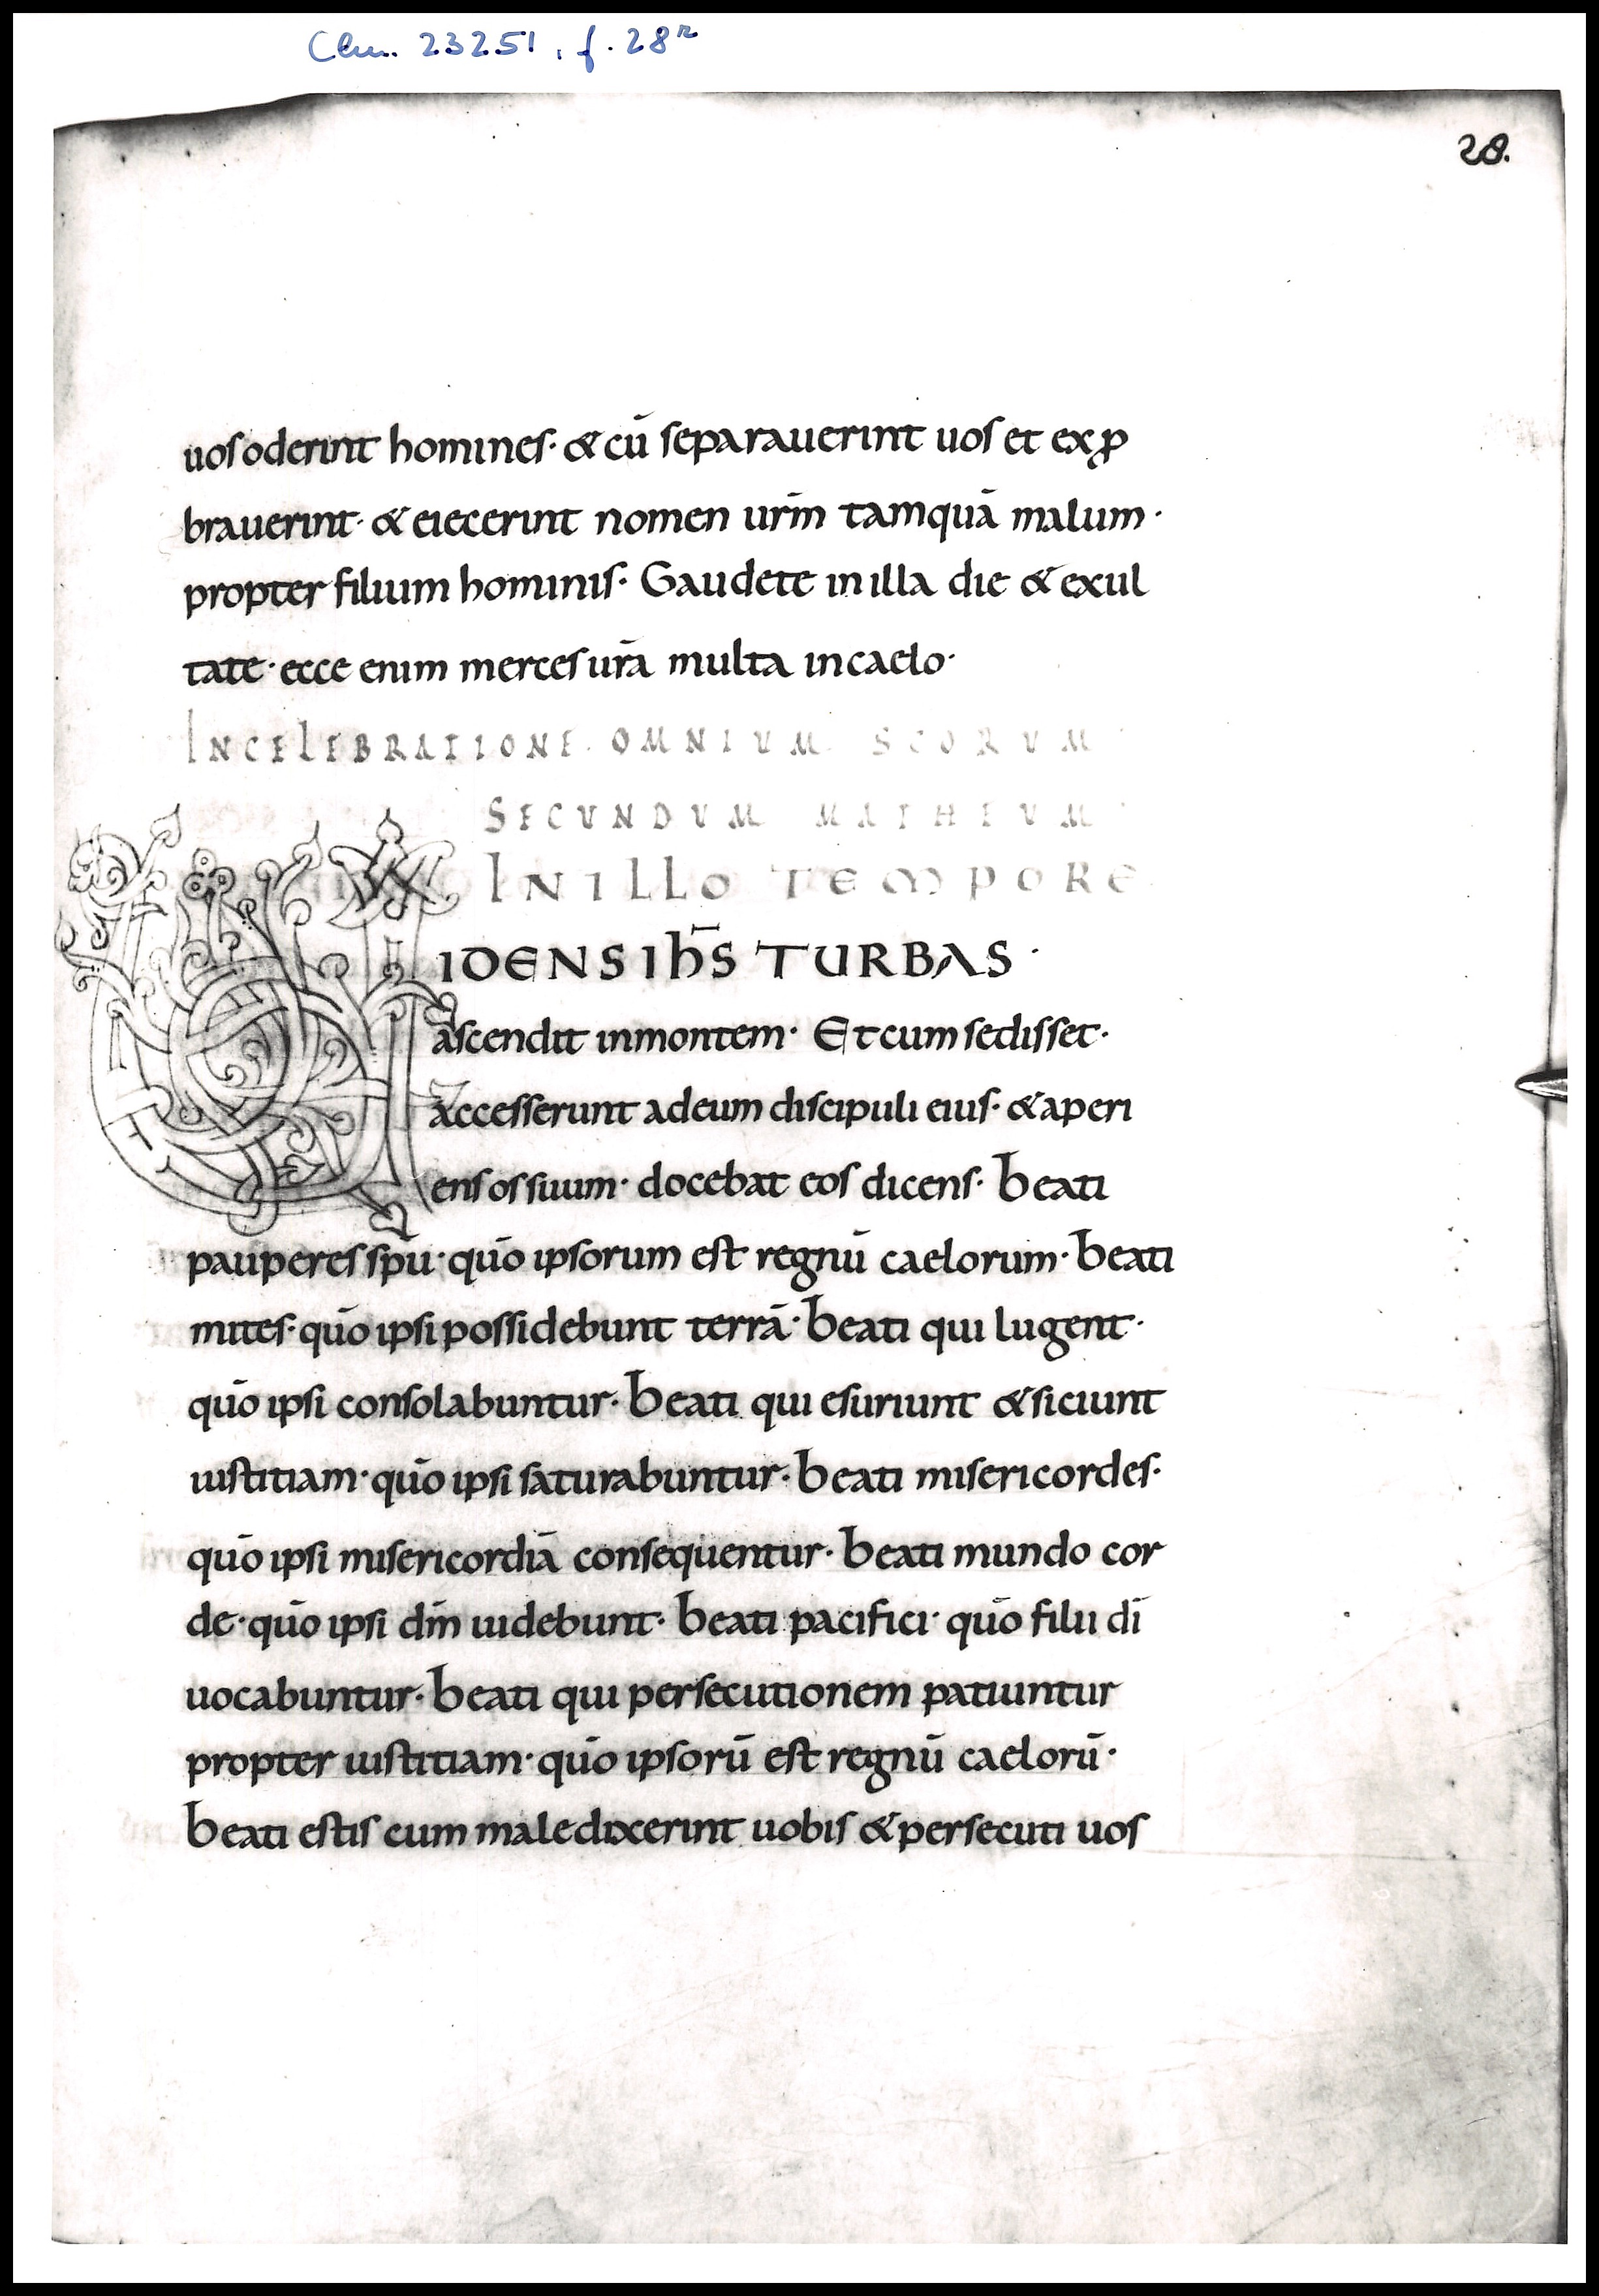 Clm. 23251, f. 28r
28.
uos oderint homines· & cū separauerint uos et exꝓ
brauerint· & eiecerint nomen urm̄ tamquā malum·
propter filium hominis· Gaudete in illa die & exul
tate· ecce enim merces urā multa in caelo·
IN CELEBRATIONE OMNIUM SCORUM
SECUNDUM MATHEUM
IN ILLO TEMPORE
VIDENS IHS̄ TURBAS·
ascendit in montem· Et cum sedisset·
accesserunt ad eum discipuli eius· & aperi
ens os suum· docebat eos dicens· Beati
pauperes spū· quō ipsorum est regnū caelorum· Beati
mites· quō ipsi possidebunt terrā· Beati qui lugent·
quō ipsi consolabuntur· Beati qui esuriunt & siciunt
iustitiam· quō ipsi saturabuntur· Beati misericordes·
quō ipsi misericordiā consequentur· Beati mundo cor
de· quō ipsi dm̄ uidebunt· Beati pacifici· quō filii dī
uocabuntur· Beati qui persecutionem patiuntur
propter iustitiam· quō ipsorū est regnū caelorū·
Beati estis cum maledixerint uobis & persecuti uos